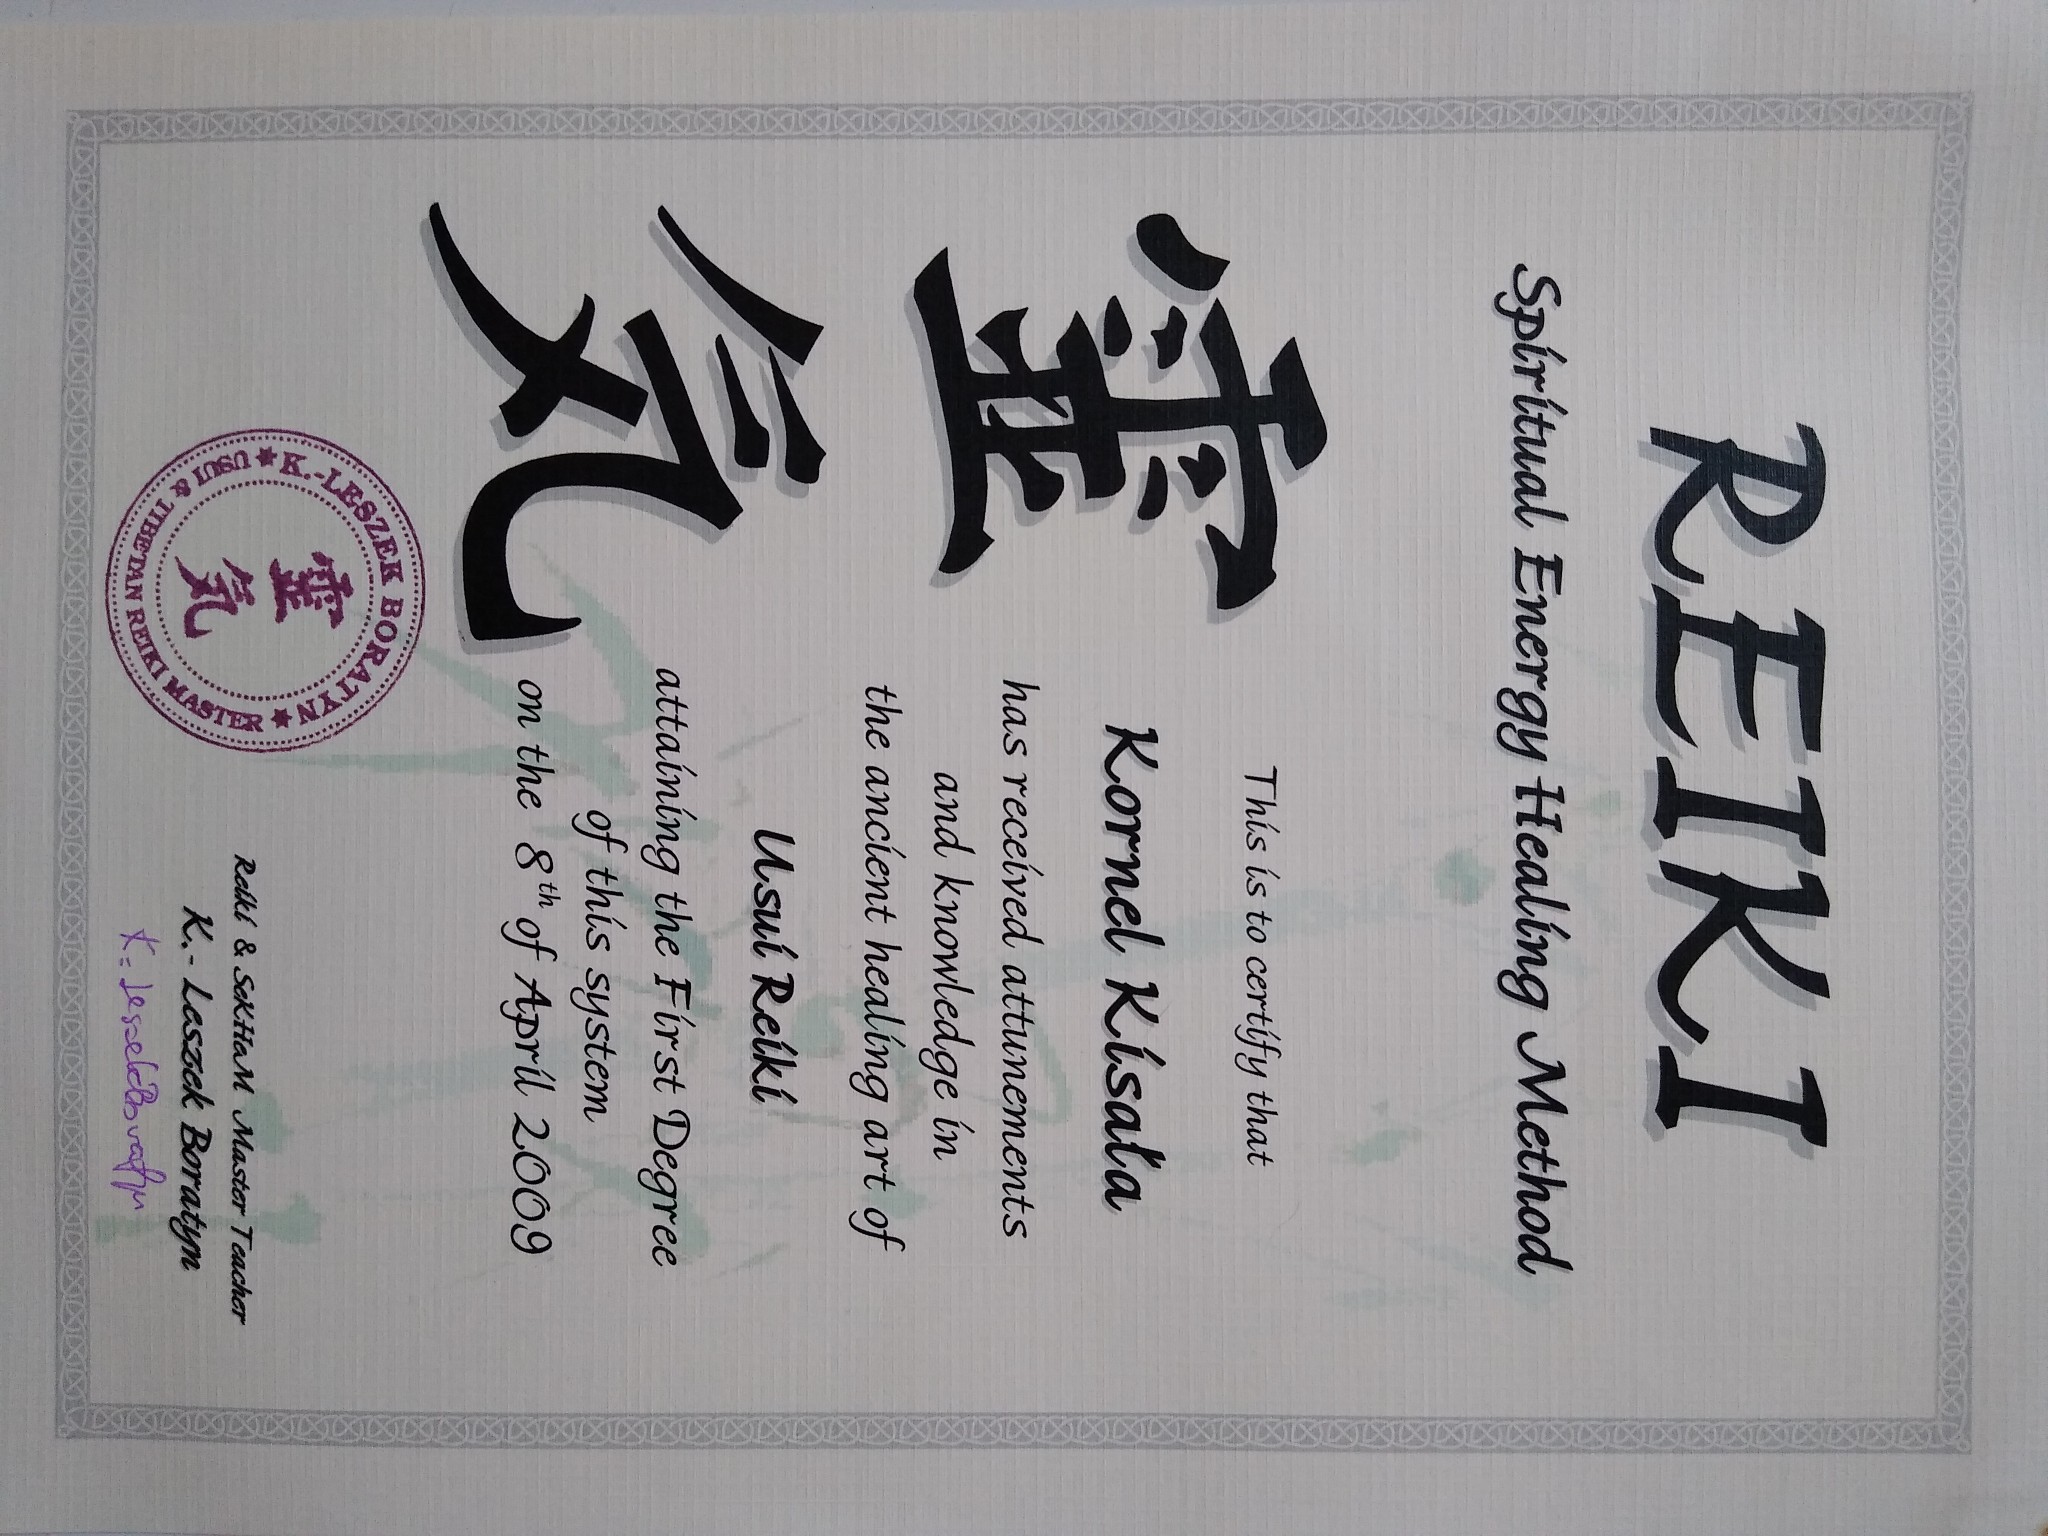 REIKI
Spiritual Energy Healing Method
靈
気
This is to certify that
Kornel Kisała
has received attunements
and knowledge in
the ancient healing art of
Usui Reiki
attaining the First Degree
of this system
on the 8th of April 2009
Reiki & SeKHaM Master Teacher
K.- Leszek Boratyn
K.-Leszek Boratyn
★ K.-LESZEK BORATYN ★
USUI & TIBETAN REIKI MASTER
靈
気